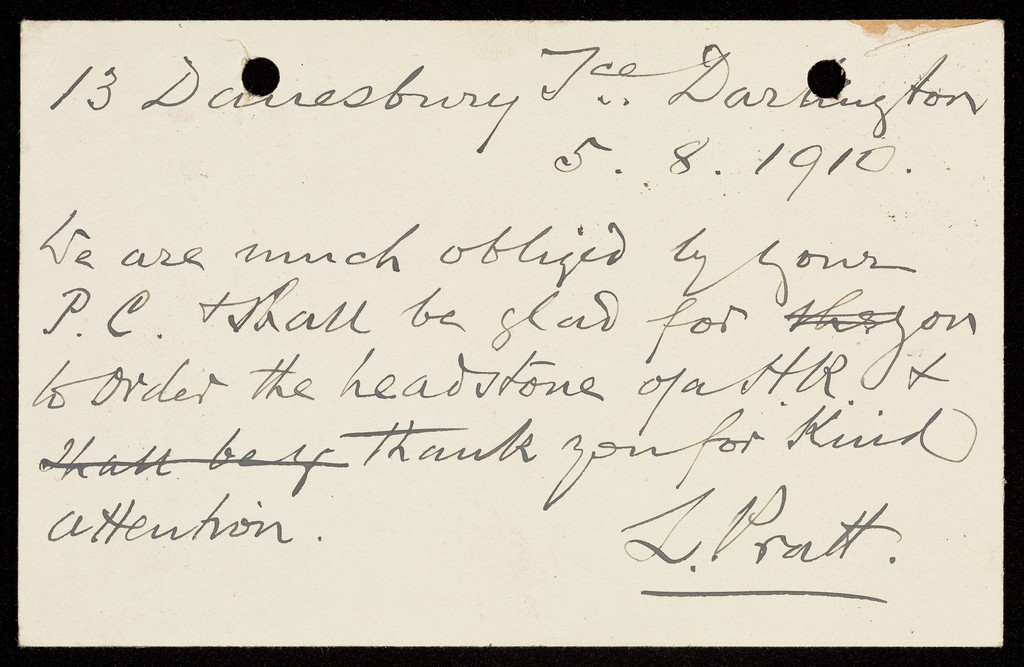 13 Danesbury Tce. Darlington
5. 8. 1910.
We are much obliged by your
P.C. & shall be glad for the you
to order the headstone of a H.R. &
shall be g thank you for Kind
attention.
L. Pratt.